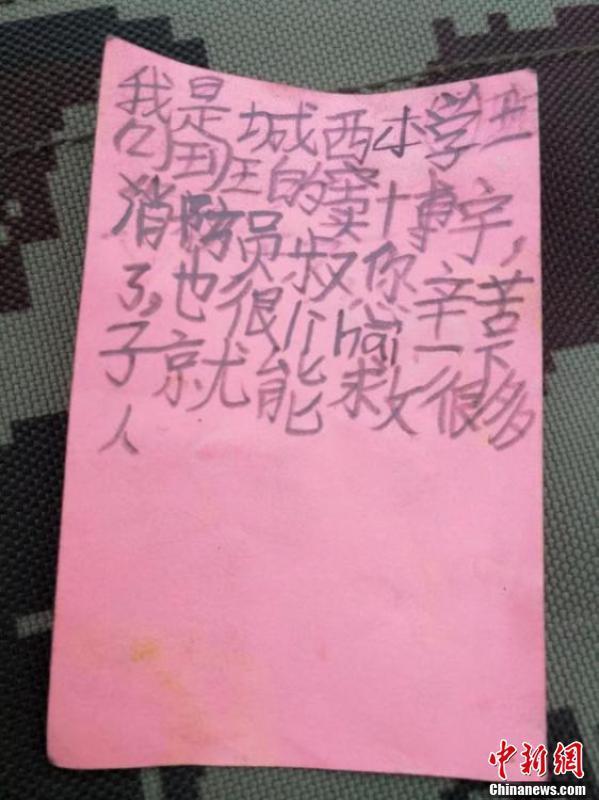 我是城西小学
班的窦博宇,
消防员叔您辛苦
了,也很lì hai一下
子就能救很多
人
中新网
Chinanews.com